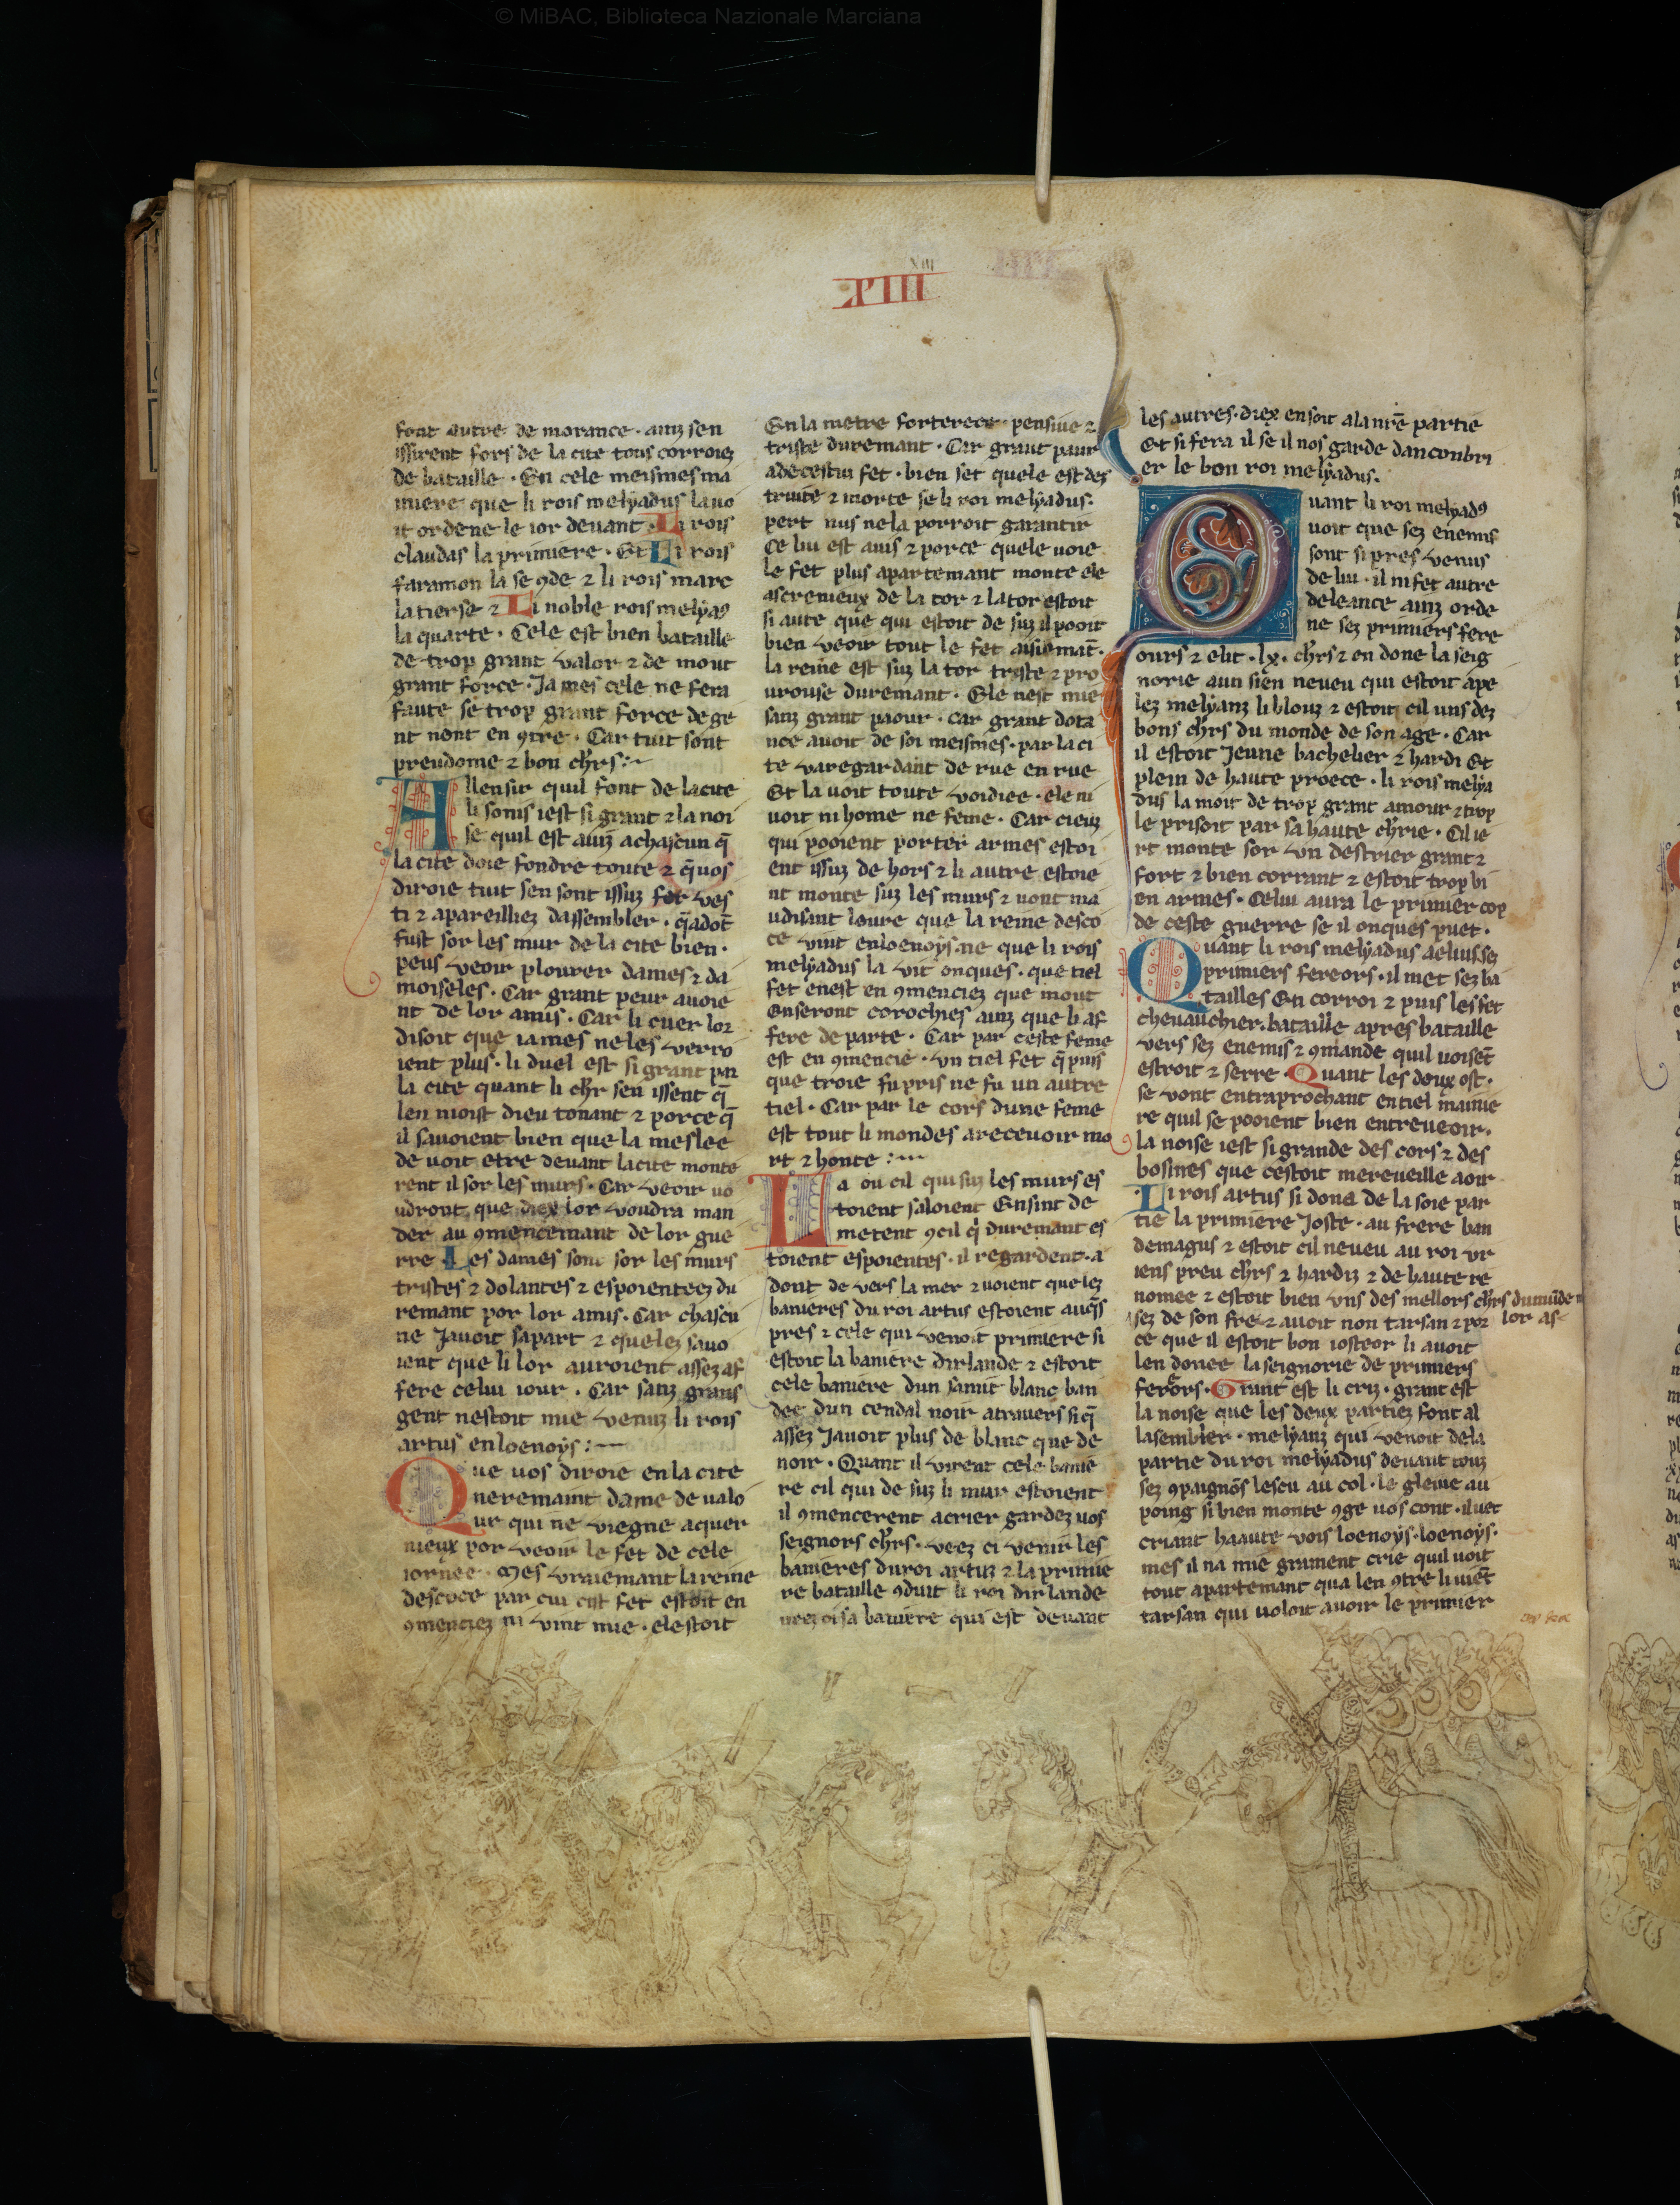 © MiBAC, Biblioteca Nazionale Marciana
XIIII
font autre de morance · ainz sen
issirent fors de la cite tous corroiez
de bataille · En cele meismes ma
niere que li rois melyadus lauo
it ordene le ior deuant · Li rois
claudas la primiere · Et Li rois
faramon la se ꝯde ⁊ li rois marc
la tierse ⁊ Li noble rois melyadꝰ
la quarte · Cele est bien bataille
de trop grant valor ⁊ de mout
grant force · Ja mes cele ne fera
faute se trop grant force de ge
nt nont en ꝯtre · Car tuit sont
preudome ⁊ bon chrs :~
Allensir quil font de la cite
li sonis iest si grant ⁊ la noi
se quil est auiz a chascun q̄
la cite doie fondre toute ⁊ q̄ uos
diroie tuit sen sont issuz fer ves
ti ⁊ apareilliez dassembler · q̄ adōt
fust sor les mur de la cite bien ·
peus veoir plourer dames ⁊ da
moiseles · Car grant peur auoie
nt de lor amis · Car li cuer lor
disoit que iames ne les verro
ient plus · li duel est si grant par
la cite quant li chr sen issent q̄
len nioist dieu tonant ⁊ porce q̄
il sauoient bien que la meslee
de uoit etre deuant la cite monte
rent il sor les murs · Car veoir uo
udront que diex lor voudra man
der au ꝯmencemant de lor gue
rre · Les dames sont sor les murs
tristes ⁊ dolantes ⁊ espoienteez du
remant por lor amis · Car chascu
ne Jauoit sapart ⁊ quelez sauo
ient que li lor auroient assez af
fere celui iour · Car sanz grans
gent nestoit mie venuz li rois
artus en loenoys :~
Que uos diroie en la cite
ne remaint dame de ualo
ur qui ne viegne aquer
nieux por veoir le fet de cele
iornee · Mes vraiemant la reine
descoce par cui cist fet estoit en
ꝯmenciez ni vint mie · ele stoit
En la metre forterece · pensiue ⁊
triste duremant · Car grant paur
a de cestui fet · bien set quele est des
truite ⁊ morte se li roi melyadus ·
pert nus ne la porroit garantir
Ce lui est auis ⁊ porce quele uoie
le fet plus apartemant monte ele
as crenieux de la tor ⁊ la tor estoit
si aute que qui estoit de suz il pooit
bien veoir tout le fet aisiemāt ·
la reine est suz la tor triste ⁊ pro
urouse duremant · Ele nest mie
sanz grant paour · car grant dota
nce auoit de soi meismes · par la ci
te va regardant de rue en rue
Et la uoit toute voidiee · ele ni
uoit ni home ne feme · Car cieuz
qui pooient porter armes estoi
ent issuz de hors ⁊ li autre estoie
nt monte suz les murs ⁊ uont ma
udisant loure que la reine desco
ce vint en loenoys · ne que li rois
melyadus la vit onques · que tiel
fet en est en ꝯmenciez que mout
en seront corochies ainz que li af
fere de parte · Car par ceste feme
est en ꝯmencie · vn tiel fet q̄ puis
que troie fu pris ne fu un autre
tiel · Car par le cors dune feme
est tout li mondes a receuoir mo
rt ⁊ honte :~
La ou cil qui suz les murs es
toient saloient Ensint de
metent ꝯ cil q̄ duremant es
toient espoientes · il regardent · a
dont de vers la mer ⁊ uoient que lez
banieres du roi artus estoient auq̄s
pres ⁊ cele qui venoit primiere si
estoit la baniere dirlande ⁊ estoit
cele baniere dun samit blanc ban
dee dun cendal noir atrauers si q̄
assez Jauoit plus de blanc que de
noir · Quant il virent cele banie
re cil qui de suz li mur estoient
il ꝯmencerent acrier gardez uos
seignors chrs · veez ci venir les
banieres du roi artuz ⁊ la primie
re bataille ꝯduit li roi dirlande
ueez ci sa baniere qui est deuant
les autres · diex en soit a la nr̄e partie
Et si fera il se il nos garde danconbri
er le bon roi melyadus ·
Quant li roi melyadꝰ
uoit que sez enemis
sont si pres venus
de lui · il ni fet autre
deleance ainz orde
ne sez primiers fere
ours ⁊ elit · lx · chrs ⁊ en done la seig
norie aun sien neueu qui estoit ape
lez melyanz li blouz ⁊ estoit cil uns dez
bons chrs du monde de son age · Car
il estoit Jeune bachelier ⁊ hardi Et
plein de haute proece · li rois melya
dus la moit de trop grant amour ⁊ trop
le prisoit par sa haute chrie · Cil ie
rt monte sor vn destrier grant ⁊
fort ⁊ bien corrant ⁊ estoit trop bi
en armes · Celui aura le primier cop
de ceste guerre se il onques puet ·
Quant li rois melyadus a eluis sez
primiers fereors · il met sez ba
tailles En corroi ⁊ puis les fet
cheuauchier · bataille apres bataille
vers sez enemis ⁊ ꝯmande quil uoisēt
estroit ⁊ serre · Quant les doux ost ·
se vont entraprochant en tiel maniere
re quil se pooient bien entreueoir ·
la noise iest si grande des cors ⁊ des
bosines que cestoit merueille aoir
· Li rois artus si dona de la soie par
tie la primiere Joste · au frere ban
demagus ⁊ estoit cil neueu au roi vr
iens preu chrs ⁊ hardiz ⁊ de haute re
nomee ⁊ estoit bien vns des mellors chrs du mūde
sez de son fre ⁊ auoit non tarsan ⁊ por lor as
ce que il estoit bon iosteor li auoit
len donee la seignorie de primiers
ferors · Grant est li criz · grant est
la noise que les deux partiez font al
lasembler · melyanz qui venoit de la
partie du roi melyadus deuant touz
sez ꝯpaignōs lescu au col · le gleiue au
poing si bien monte ꝯ ge uos cont · il uet
criant haaute vois loenoys · loenoys ·
mes il na mie grament crie quil uoit
tout apartemant qua len ꝯtre li uiēt
tarsan qui uoloit auoir le primier